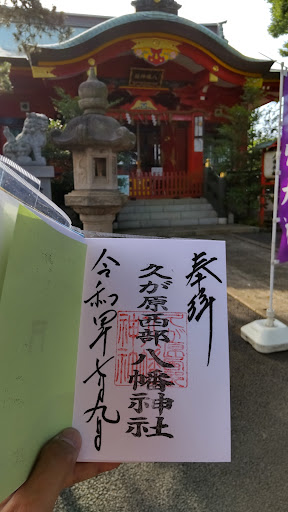 奉拝
久が原西部八幡神社
令和四年七月九日